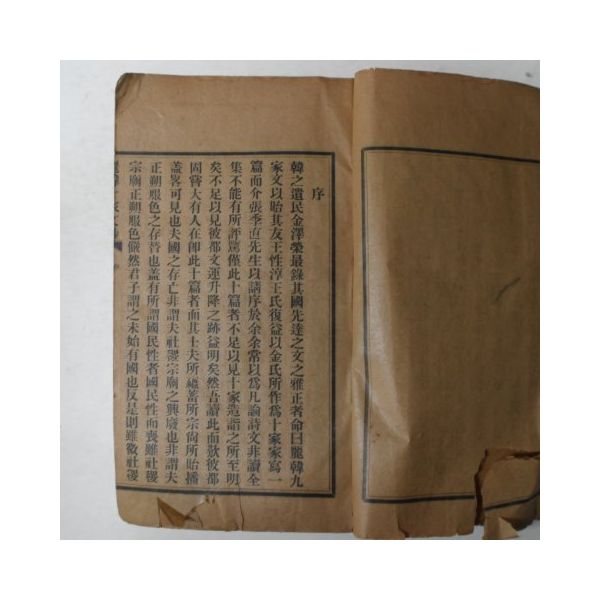 序
韓之遺民金澤榮最錄其國先達之文之雅正者命曰麗韓九
家文以貽其友王性淳王氏復益以金氏所作爲十家家寫一
篇而介張季直先生以請序於余余常以爲凡論詩文非讀全
集不能有所評騭僅此十篇者不足以見十家造詣之所至明
矣不足以見彼都文運升降之跡益明矣然吾讀此而歎彼都
固嘗大有人在卽此十篇者而其士夫所蘊蓄所宗尙所貽播
蓋畧可見也夫國之存亡非謂夫社稷宗廟之興廢也非謂夫
正朔服色之存替也蓋有所謂國民性者國民性而喪雖社稷
宗廟正朔服色儼然君子謂之未始有國也反是則雖微社稷